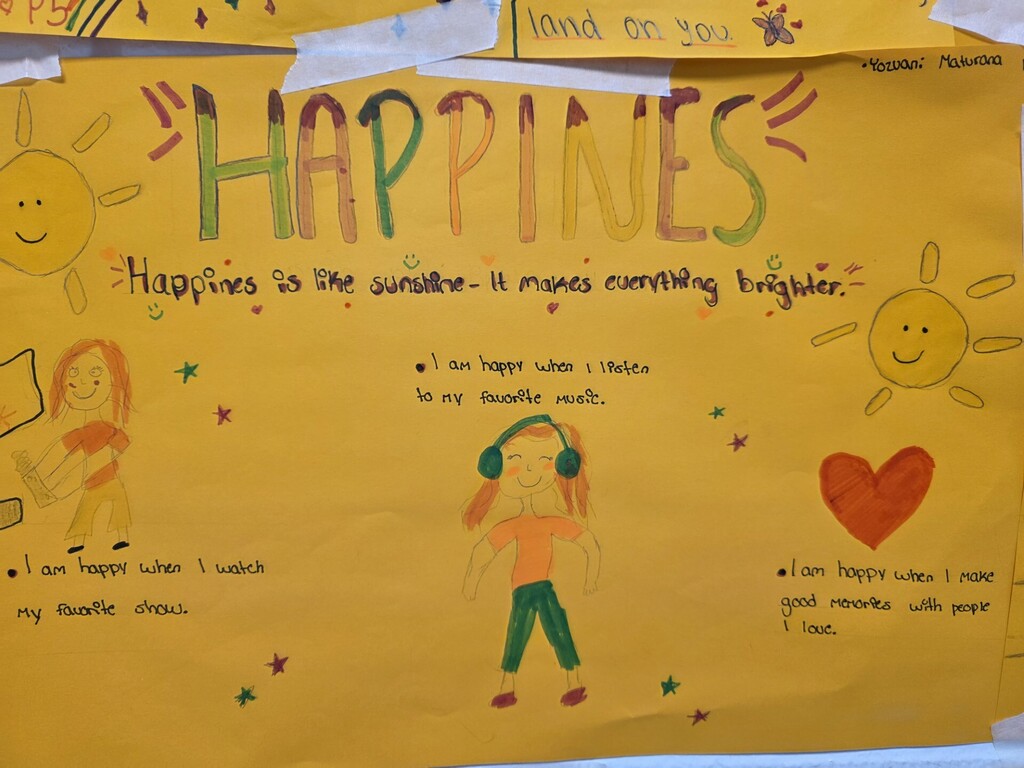 P5
land on you.
• Yozuani Maturana
HAPPINES
Happines is like sunshine - It makes everything brighter.
• I am happy when I listen
to my favorite music.
• I am happy when I watch
my favorite show.
• I am happy when I make
good memories with people
I love.